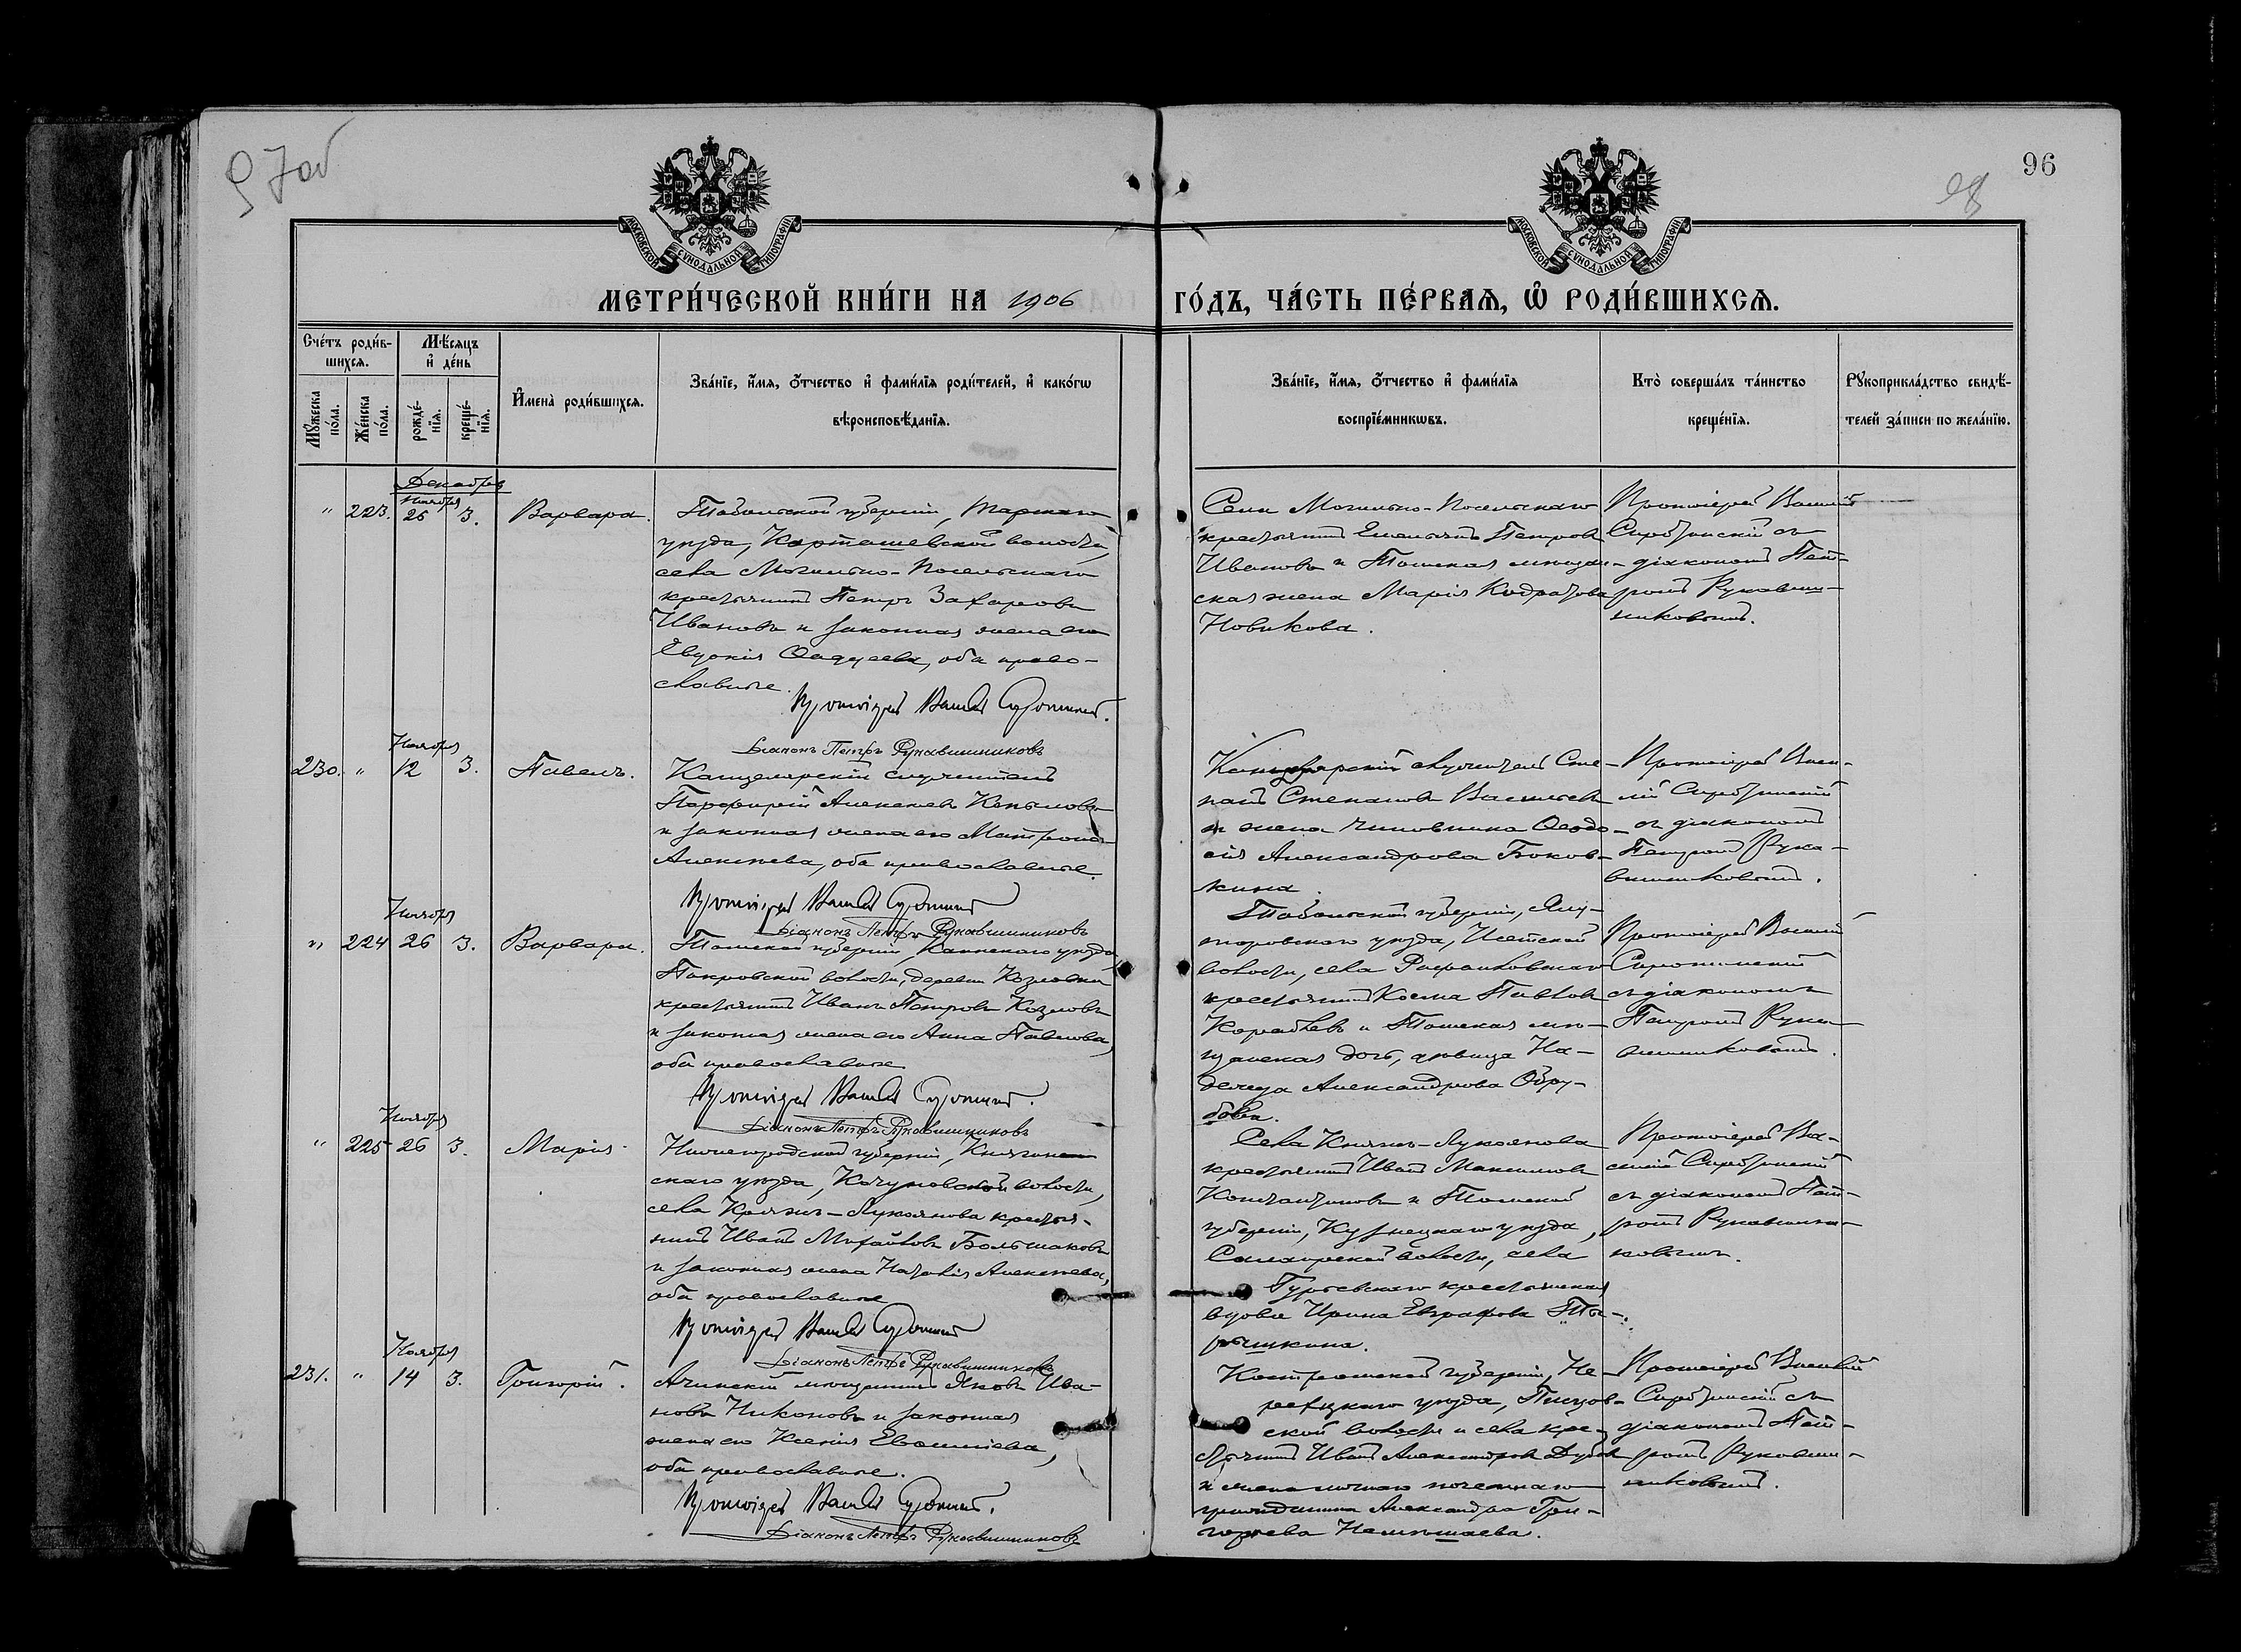 97об
96
98
МОСКОВСКОЙ СУНОДАЛЬНОЙ ТИПОГРАФІИ
МОСКОВСКОЙ СУНОДАЛЬНОЙ ТИПОГРАФІИ
МЕТРИ́ЧЕСКОЙ КНИ́ГИ НА 1906 ГО́ДЪ, ЧА́СТЬ ПЕ́РВАѦ, Ѽ РОДИ́ВШИХСѦ.
Сче́тъ роди́в-
шихсѧ.
Мѣ́сѧцъ
и҆ де́нь
Мꙋ́жеска
по́ла.
Же́нска
по́ла.
рожде́-
нїѧ.
креще́-
нїѧ.
И҆мена̀ роди́вшихсѧ.
Зва́нїе, и҆́мѧ, о҆́тчество и҆ фами́лїѧ роди́телей, и҆ како́гѡ
вѣроисповѣ́данїѧ.
Зва́нїе, и҆́мѧ, о҆́тчество и҆ фами́лїѧ
воспрїе́мникѡвъ.
Кто̀ соверша́лъ та́инство
креще́нїѧ.
Рꙋкоприкла́дство свидѣ́-
телей за́писи по жела́нїю.
Декабрь
Ноября
" 223. 25 3. Варвара.
Тобольской губерніи, Тарскаго
уѣзда, Карташевской волости,
села Могильно-Посельскаго
крестьянинъ Петръ Захаровъ
Ивановъ и законная жена его
Евдокія Фаддеева, оба право-
славные.
Протоіерей Василій Сиротинскій.
Діаконъ Петръ Рукавишниковъ
Села Могильно-Посельскаго
крестьянинъ Емельянъ Петровъ
Ивановъ и Томская мѣщан-
ская жена Марія Кодратова
Новикова.
Протоіерей Василій
Сиротинскій съ
діакономъ Пет-
ромъ Рукавиш-
никовымъ.
Ноября
230. " 12 3. Павелъ.
Канцелярскій служитель
Порфирій Алексѣевъ Копыловъ
и законная жена его Матрона
Алексѣева, оба православные.
Протоіерей Василій Сиротинскій
Діаконъ Петръ Рукавишниковъ
Канцелярскій служитель Сте-
панъ Степановъ Васильевъ
и жена чиновника Ѳеодо-
сія Александрова Боков-
кина.
Протоіерей Васи-
лій Сиротинскій
съ діакономъ
Петромъ Рука-
вишниковымъ.
Ноября
" 224 26 3. Варвара.
Томской губерніи, Каинскаго уѣзда,
Покровской волости, деревни Козловки
крестьянинъ Иванъ Петровъ Козловъ
и законная жена его Анна Павлова,
оба православные
Протоіерей Василій Сиротинскій.
Діаконъ Петръ Рукавишниковъ
Тобольской губерніи, Ялу-
торовскаго уѣзда, Исетской
волости, села Рафаиловскаго
крестьянинъ Косма Павловъ
Кораблевъ и Томская мѣ-
щанская дочь, дѣвица На-
дежда Александрова Обру-
бова.
Протоіерей Василій
Сиротинскій
съ діакономъ
Петромъ Рука-
вишниковымъ.
Ноября
" 225 26 3. Марія
Нижегородской губерніи, Княгинин-
скаго уѣзда, Качуновской волости,
села Княжъ-Лукоянова крестья-
нинъ Иванъ Михайловъ Большаковъ
и законная жена Наталія Алексѣева,
оба православные
Протоіерей Василій Сиротинскій
Діаконъ Петръ Рукавишниковъ
Села Княжъ-Лукоянова
крестьянинъ Иванъ Максимовъ
Константиновъ и Томской
губерніи, Кузнецкаго уѣзда,
Салаирской волости, села
Гурьевскаго крестьянская
вдова Ирина Евграфова
Протоіерей Ва-
силій Сиротинскій
съ діакономъ Пет-
ромъ Рукавишни-
ковымъ.
Ноября
231. " 14 3. Григорій.
Ачинскій мѣщанинъ Яковъ Ива-
новъ Никоновъ и законная
жена его Ксенія
оба православные.
Протоіерей Василій Сиротинскій.
Діаконъ Петръ Рукавишниковъ
Костромской губерніи, Не-
рехтскаго уѣзда, Писцов-
ской волости и села кре-
стьянинъ Иванъ Александровъ
и жена личнаго почетнаго
гражданина Александра Гри-
горьева
Протоіерей Василій
Сиротинскій съ
діакономъ Пет-
ромъ Рукавиш-
никовымъ.